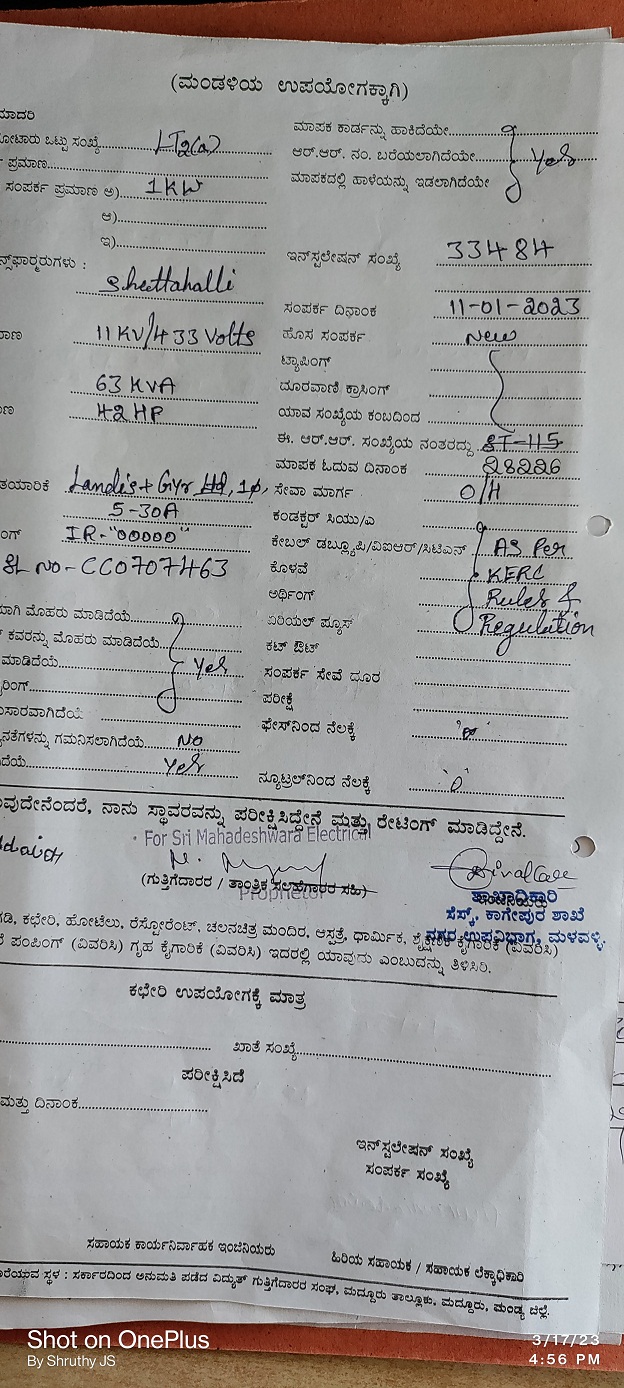 (ಮಂಡಳಿಯ ಉಪಯೋಗಕ್ಕಾಗಿ)
ಮಾದರಿ
ಮಾಪಕ ಕಾರ್ಡನ್ನು ಹಾಕಿದೆಯೇ
ಒಟ್ಟು ಸಂಖ್ಯೆ LT2(a)
ಆರ್.ಆರ್. ನಂ. ಬರೆಯಲಾಗಿದೆಯೇ Yes
ಪ್ರಮಾಣ
ಮಾಪಕದಲ್ಲಿ ಹಾಳೆಯನ್ನು ಇಡಲಾಗಿದೆಯೇ
ಸಂಪರ್ಕ ಪ್ರಮಾಣ ಅ) 1KW
ಆ)
ಇ)
ಇನ್‌ಸ್ಟಲೇಷನ್ ಸಂಖ್ಯೆ 33484
Shettahalli
ಸಂಪರ್ಕ ದಿನಾಂಕ 11-01-2023
11 KV/433 Volts
ಹೊಸ ಸಂಪರ್ಕ New
ಟ್ಯಾಪಿಂಗ್
63 KVA
ದೂರವಾಣಿ ಕ್ರಾಸಿಂಗ್
42 HP
ಯಾವ ಸಂಖ್ಯೆಯ ಕಂಬದಿಂದ
ಈ. ಆರ್.ಆರ್. ಸಂಖ್ಯೆಯ ನಂತರದ್ದು ST-115
ಮಾಪಕ ಓದುವ ದಿನಾಂಕ 28226
ತಯಾರಿಕೆ Landis+Gyr Ltd, 1φ,
ಸೇವಾ ಮಾರ್ಗ O/H
5-30A
ಕಂಡಕ್ಟರ್ ಸಿಯು/ಎ
IR-"00000"
ಕೇಬಲ್ ಡಬ್ಲ್ಯೂಪಿ/ವಿಐಆರ್/ಸಿಟಿಎನ್ AS Per
SL NO-CC0707463
ಕೊಳವೆ KERC
ಅರ್ಥಿಂಗ್ Rules &
ಏರಿಯಲ್ ಪ್ಯೂಸ್ Regulation
ಮೊಹರು ಮಾಡಿದೆಯೆ
ಕವರನ್ನು ಮೊಹರು ಮಾಡಿದೆಯೆ
ಕಟ್ ಔಟ್
ಮಾಡಿದೆಯೆ Yes
ಸಂಪರ್ಕ ಸೇವೆ ದೂರ
ಪರೀಕ್ಷೆ
ಫೇಸ್‌ನಿಂದ ನೆಲಕ್ಕೆ "0"
ಗಮನಿಸಲಾಗಿದೆಯೆ NO
Yes
ನ್ಯೂಟ್ರಲ್‌ನಿಂದ ನೆಲಕ್ಕೆ "0"
ನಾನು ಸ್ಥಾವರವನ್ನು ಪರೀಕ್ಷಿಸಿದ್ದೇನೆ ಮತ್ತು ರೇಟಿಂಗ್ ಮಾಡಿದ್ದೇನೆ.
For Sri Mahadeshwara Electrical
(ಗುತ್ತಿಗೆದಾರರ / ತಾಂತ್ರಿಕ ಸಲಹೆಗಾರರ ಸಹಿ)
Proprietor
ಶಾಖಾಧಿಕಾರಿ
ಸೆಸ್ಕ್, ಕಾಗೇಪುರ ಶಾಖೆ
ನಗರ ಉಪವಿಭಾಗ, ಮಳವಳ್ಳಿ.
ಕಛೇರಿ, ಹೋಟೆಲು, ರೆಸ್ಟೋರೆಂಟ್, ಚಲನಚಿತ್ರ ಮಂದಿರ, ಆಸ್ಪತ್ರೆ, ಧಾರ್ಮಿಕ, ಶೈಕ್ಷಣಿಕ ಕೈಗಾರಿಕೆ (ವಿವರಿಸಿ)
ಪಂಪಿಂಗ್ (ವಿವರಿಸಿ) ಗೃಹ ಕೈಗಾರಿಕೆ (ವಿವರಿಸಿ) ಇದರಲ್ಲಿ ಯಾವುದು ಎಂಬುದನ್ನು ತಿಳಿಸಿರಿ.
ಕಛೇರಿ ಉಪಯೋಗಕ್ಕೆ ಮಾತ್ರ
ಖಾತೆ ಸಂಖ್ಯೆ
ಪರೀಕ್ಷಿಸಿದೆ
ಮತ್ತು ದಿನಾಂಕ
ಇನ್‌ಸ್ಟಲೇಷನ್ ಸಂಖ್ಯೆ
ಸಂಪರ್ಕ ಸಂಖ್ಯೆ
ಸಹಾಯಕ ಕಾರ್ಯನಿರ್ವಾಹಕ ಇಂಜಿನಿಯರು
ಹಿರಿಯ ಸಹಾಯಕ / ಸಹಾಯಕ ಲೆಕ್ಕಾಧಿಕಾರಿ
ದೊರೆಯುವ ಸ್ಥಳ : ಸರ್ಕಾರದಿಂದ ಅನುಮತಿ ಪಡೆದ ವಿದ್ಯುತ್ ಗುತ್ತಿಗೆದಾರರ ಸಂಘ, ಮದ್ದೂರು ತಾಲ್ಲೂಕು, ಮದ್ದೂರು, ಮಂಡ್ಯ ಜಿಲ್ಲೆ.
Shot on OnePlus
By Shruthy JS
3/17/23
4:56 PM